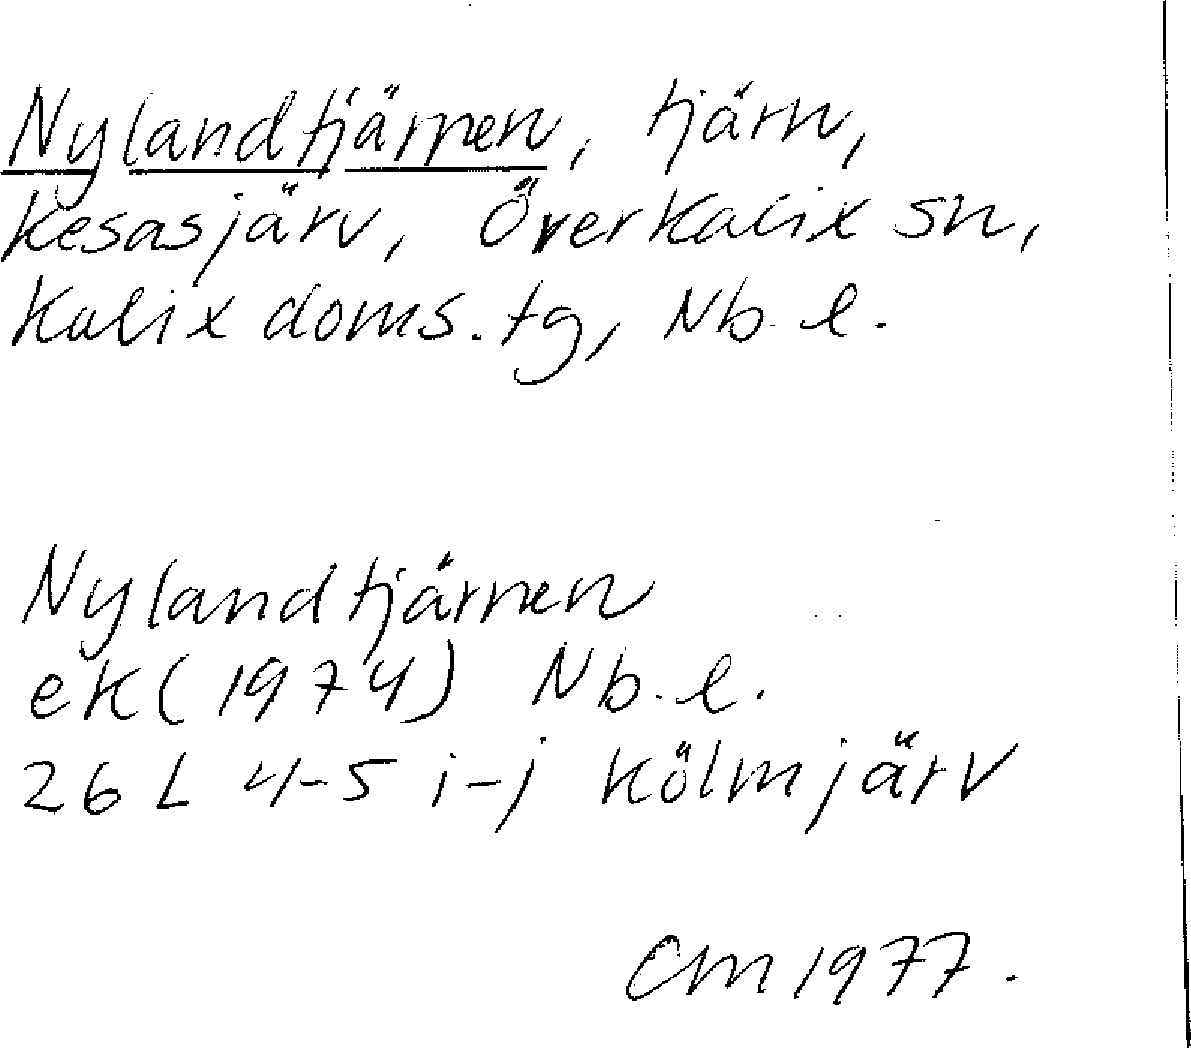 Nylandtjärnen, tjärn,
Kesasjärv, Överkalix sn,
Kalix doms. tg, Nb. l.
Nylandtjärnen
ek (1974) Nb. l.
26 L 4-5 i-j Kölmjärv
CM 1977.